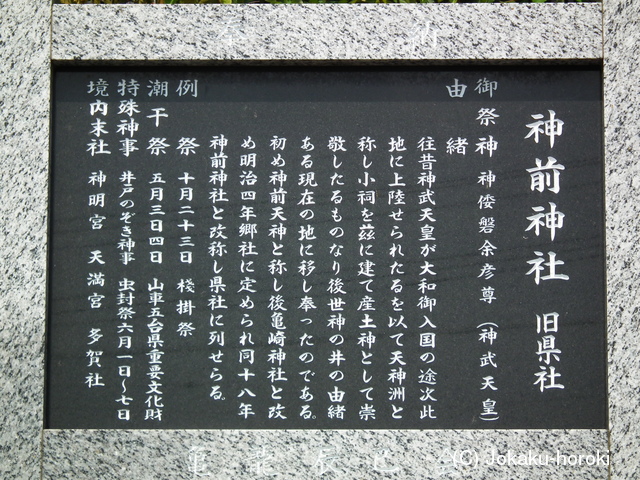 神前神社 旧県社
御祭神 神倭磐余彦尊 (神武天皇)
由緒
往昔神武天皇が大和御入国の途次此
地に上陸せられたるを以て天神洲と
称し小祠を茲に建て産土神として崇
敬したるものなり後世神の井の由緒
ある現在の地に移し奉ったのである。
初め神前天神と称し後亀崎神社と改
め明治四年郷社に定められ同十八年
神前神社と改称し県社に列せらる。
例祭 十月二十三日 棧掛祭
潮干祭 五月三日四日 山車五台県重要文化財
特殊神事 井戸のぞき神事 虫封祭六月一日~七日
境内末社 神明宮 天満宮 多賀社
(C) Jokaku-horoki